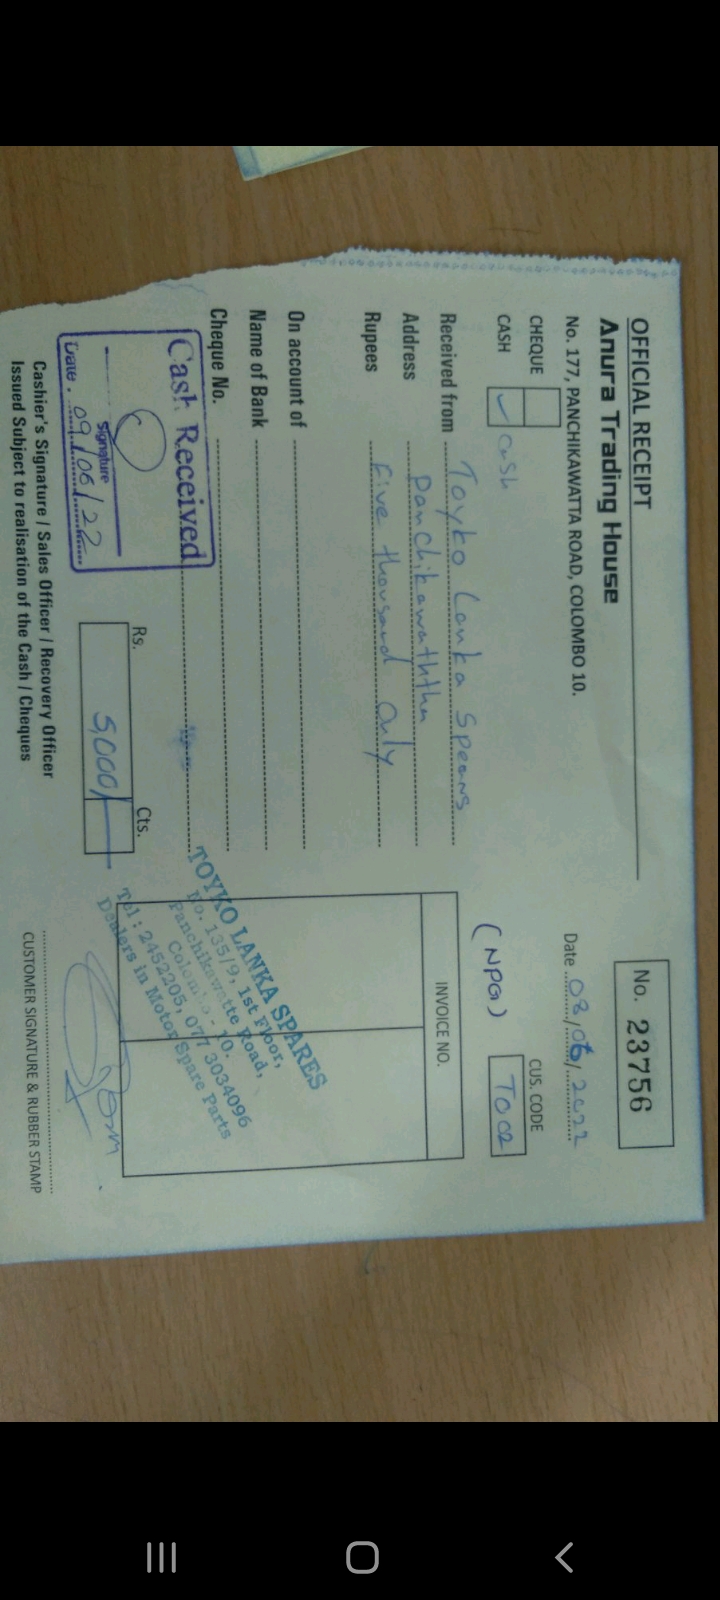 OFFICIAL RECEIPT
Anura Trading House
No. 177, PANCHIKAWATTA ROAD, COLOMBO 10.
No. 23756
Date 08/06/2022
CHEQUE
CASH ✓ Cash
CUS. CODE
(NPG) T002
Received from Toyko Lanka Spears
Address Panchikawaththa
Rupees Five thousand Only
On account of
Name of Bank
Cheque No.
INVOICE NO.
Cash Received
Signature
Date : 09/06/22
Rs. Cts.
5,000/-
TOYKO LANKA SPARES
No. 135/9, 1st Floor,
Panchikawatte Road,
Colombo - 10.
Tel : 2452205, 077 3034096
Dealers in Motor Spare Parts
Cashier's Signature / Sales Officer / Recovery Officer
Issued Subject to realisation of the Cash / Cheques
CUSTOMER SIGNATURE & RUBBER STAMP